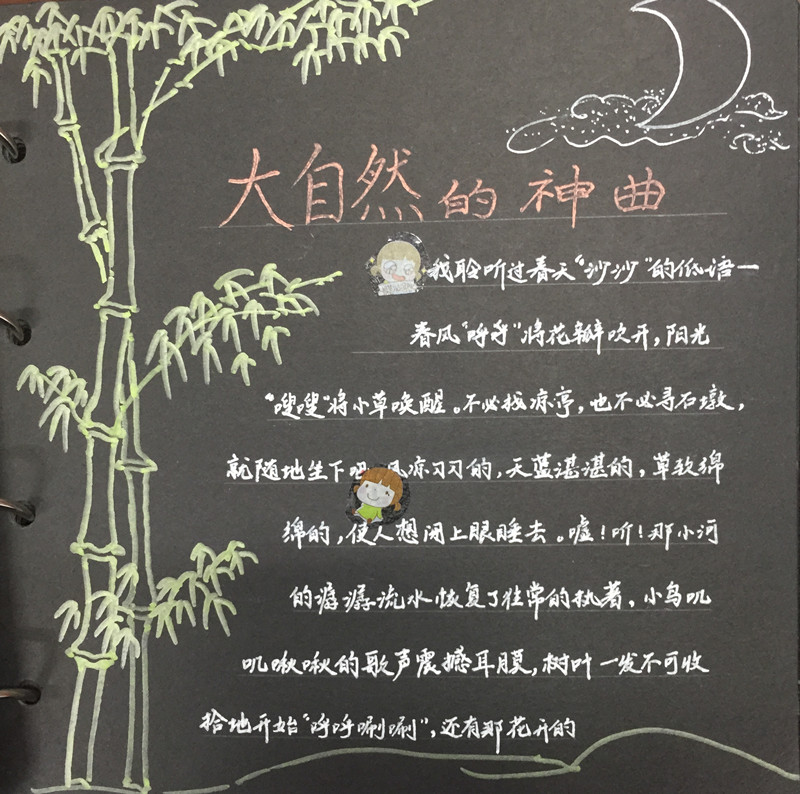 大自然的神曲
我聆听过春天“沙沙”的低语一
春风“呼呼”将花瓣吹开，阳光
“嗖嗖”将小草唤醒。不必找凉亭，也不必寻石墩，
就随地坐下吧 风凉习习的，天蓝湛湛的，草软绵
绵的，使人想闭上眼睡去。嘘！听！那小河
的潺潺流水恢复了往常的执著，小鸟叽
叽啾啾的歌声震撼耳膜，树叶一发不可收
拾地开始“呼呼唰唰”，还有那花开的